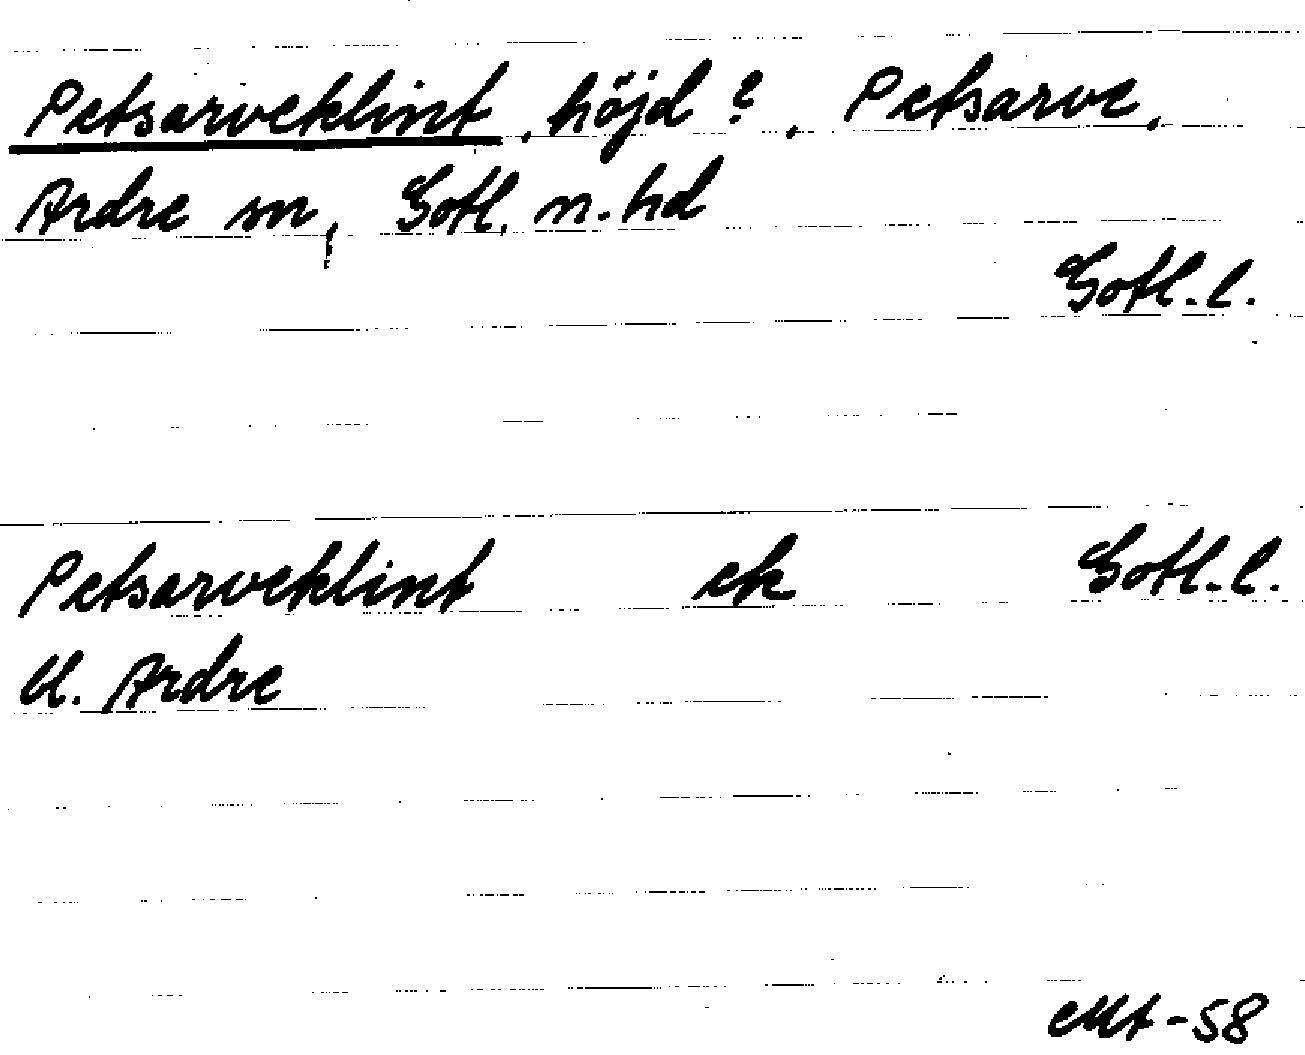 Petsarveklint, höjd?, Petsarve,
Ardre sn, Gotl. n. hd
Gotl. l.
Petsarveklint ek Gotl. l.
U. Ardre